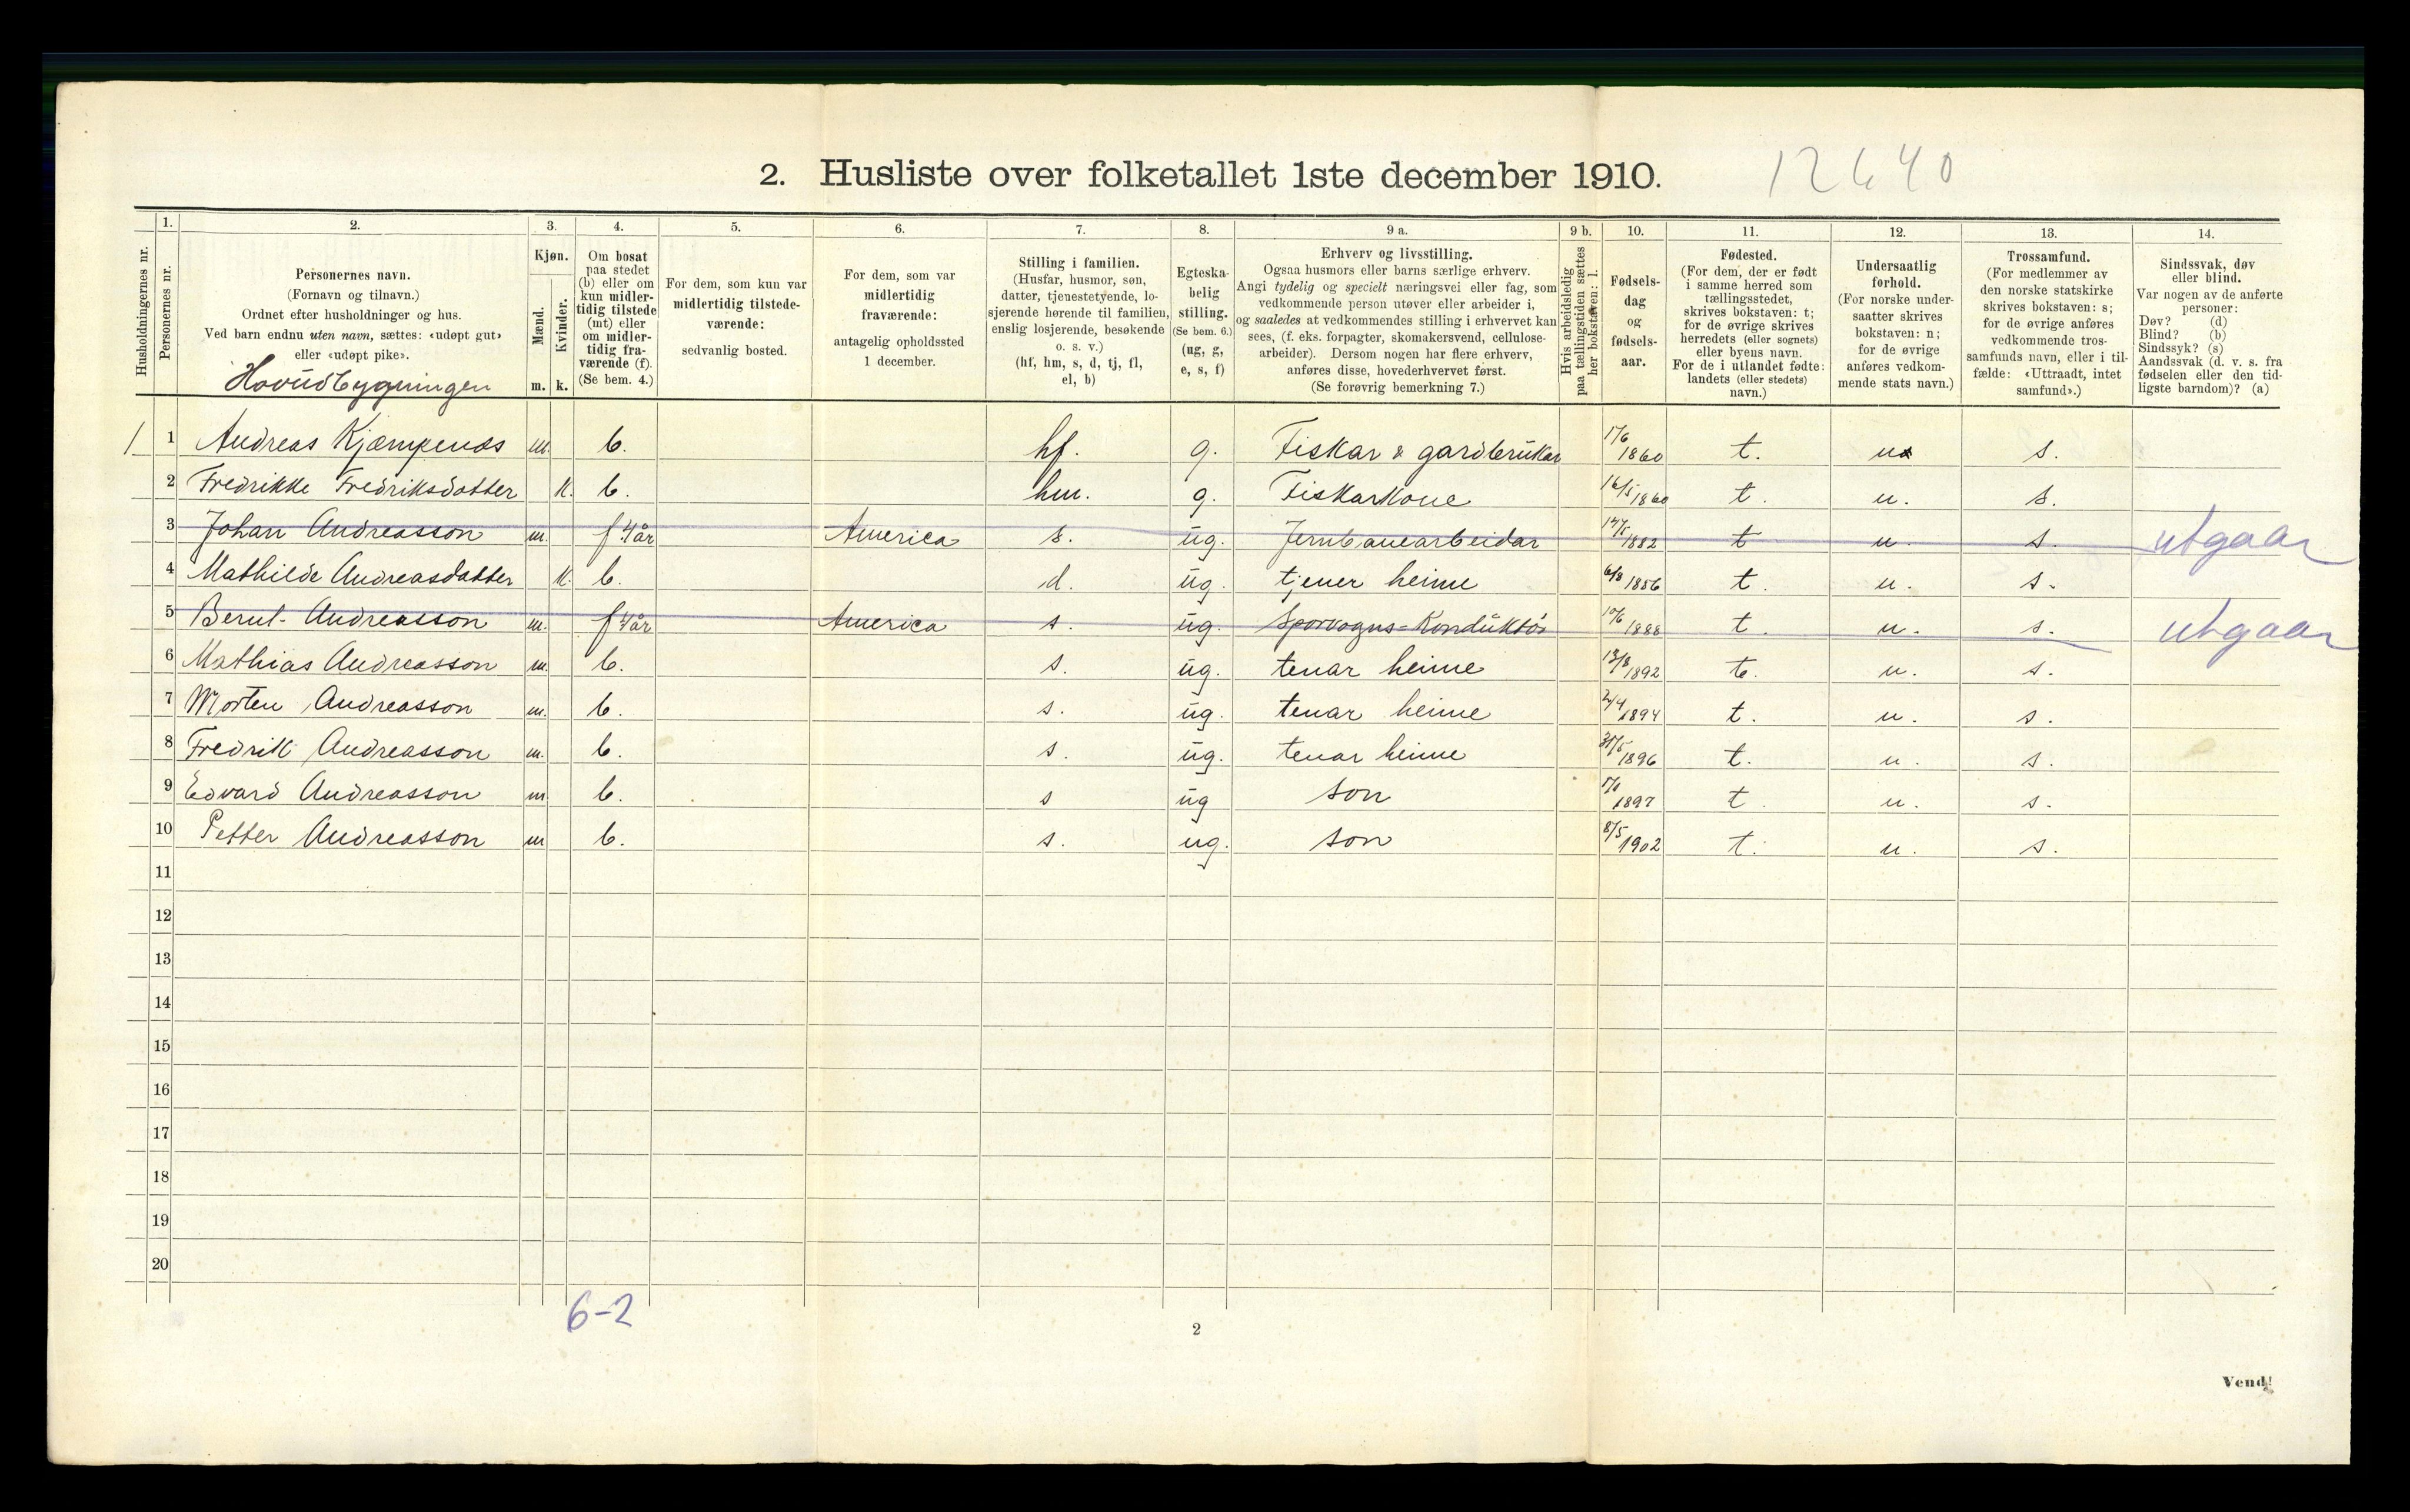 2. Husliste over folketallet 1ste december 1910.
12640
Husholdningernes nr.
1.
Personernes nr.
2.
Personernes navn.
(Fornavn og tilnavn.)
Ordnet efter husholdninger og hus.
Ved barn endnu uten navn, sættes: «udøpt gut»
eller «udøpt pike».
Hovudbygningen
3.
Kjøn.
Mænd.
m.
Kvinder.
k.
4.
Om bosat
paa stedet
(b) eller om
kun midler-
tidig tilstede
(mt) eller
om midler-
tidig fra-
værende (f).
(Se bem. 4.)
5.
For dem, som kun var
midlertidig tilstede-
værende:
sedvanlig bosted.
6.
For dem, som var
midlertidig
fraværende:
antagelig opholdssted
1 december.
7.
Stilling i familien.
(Husfar, husmor, søn,
datter, tjenestetyende, lo-
sjerende hørende til familien,
enslig losjerende, besøkende
o. s. v.)
(hf, hm, s, d, tj, fl,
el, b)
8.
Egteska-
belig
stilling.
(Se bem. 6.)
(ug, g,
e, s, f)
9 a.
Erhverv og livsstilling.
Ogsaa husmors eller barns særlige erhverv.
Angi tydelig og specielt næringsvei eller fag, som
vedkommende person utøver eller arbeider i,
og saaledes at vedkommendes stilling i erhvervet kan
sees, (f. eks. forpagter, skomakersvend, cellulose-
arbeider). Dersom nogen har flere erhverv,
anføres disse, hovederhvervet først.
(Se forøvrig bemerkning 7.)
9 b.
Hvis arbeidsledig
paa tællingstiden sættes
her bokstaven: l.
10.
Fødsels-
dag
og
fødsels-
aar.
11.
Fødested.
(For dem, der er født
i samme herred som
tællingsstedet,
skrives bokstaven: t;
for de øvrige skrives
herredets (eller sognets)
eller byens navn.
For de i utlandet fødte:
landets (eller stedets)
navn.)
12.
Undersaatlig
forhold.
(For norske under-
saatter skrives
bokstaven: n;
for de øvrige
anføres vedkom-
mende stats navn.)
13.
Trossamfund.
(For medlemmer av
den norske statskirke
skrives bokstaven: s;
for de øvrige anføres
vedkommende tros-
samfunds navn, eller i til-
fælde: «Uttraadt, intet
samfund».)
14.
Sindssvak, døv
eller blind.
Var nogen av de anførte
personer:
Døv? (d)
Blind? (b)
Sindssyk? (s)
Aandssvak (d. v. s. fra
fødselen eller den tid-
ligste barndom)? (a)
1 1 Andreas Kjæmpenes m. b. hf. g. Fiskar & gardbrukar 17/6 1860 t. n s.
2 Fredrikke Fredriksdatter k. b. hm. g. Fiskarkone 16/5 1860 t. n. s.
3 Johan Andreasson m. f 4 år America s. ug. Jernbanearbeidar 1882 t n. s. utgaar
4 Mathilde Andreasdatter k. b. d. ug. tjener heime 6/8 1886 t. n. s.
5 Bernt Andreasson m. f 4 år America s. ug. Sporvogns-Konduktör 10/6 1888 t. n. s. utgaar
6 Mathias Andreasson m. b. s. ug. tenar heime 13/8 1892 t. n. s.
7 Morten Andreasson m. b. s. ug. tenar heime 2/4 1894 t. n. s.
8 Fredrik Andreasson m. b. s. ug. tenar heime 31/5 1896 t. n. s.
9 Edvard Andreasson m b. s ug son 1897 t. n. s.
10 Petter Andreasson m b. s. ug. son 8/5 1902 t. n. s.
11
12
13
14
15
16
17
18
19
20
6-2
2
Vend!